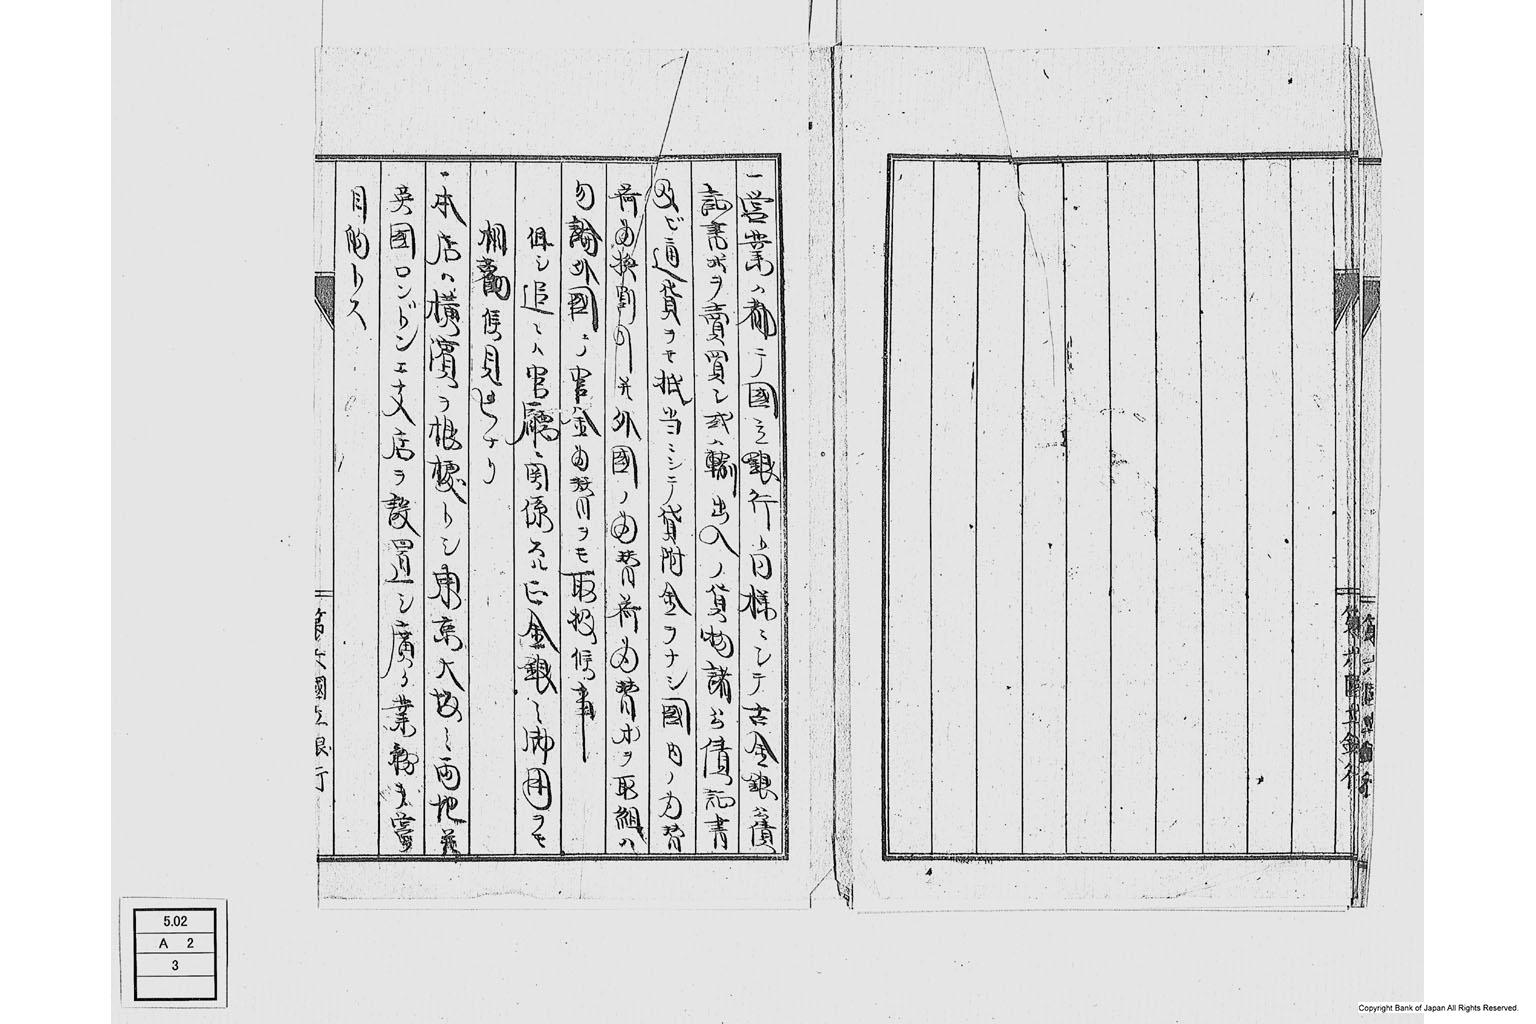 一営業ハ都テ國立銀行ト同様ニシテ古金銀公債
証書等ヲ賣買シ或ハ輸出入ノ貨物諸公債証書
及ビ通貨ヲモ抵当ニシテ貸附金ヲナシ國内ノ為替
荷為換割引并外國ノ為替荷為替等ヲ取組ハ
勿論外國ニノ官金為替ヲモ取扱候事
但シ追々ハ官廳ニ関係スル正金銀之御用ヲモ
相蒙候見込ナリ
一本店ハ横濱ヲ根據トシ東京大坂之両地并
英國ロンドンエ支店ヲ設置シ廣ク業務ヲ営
目的トス
第六國立銀行
第六國立銀行
5.02
A 2
3
Copyright Bank of Japan All Rights Reserved.